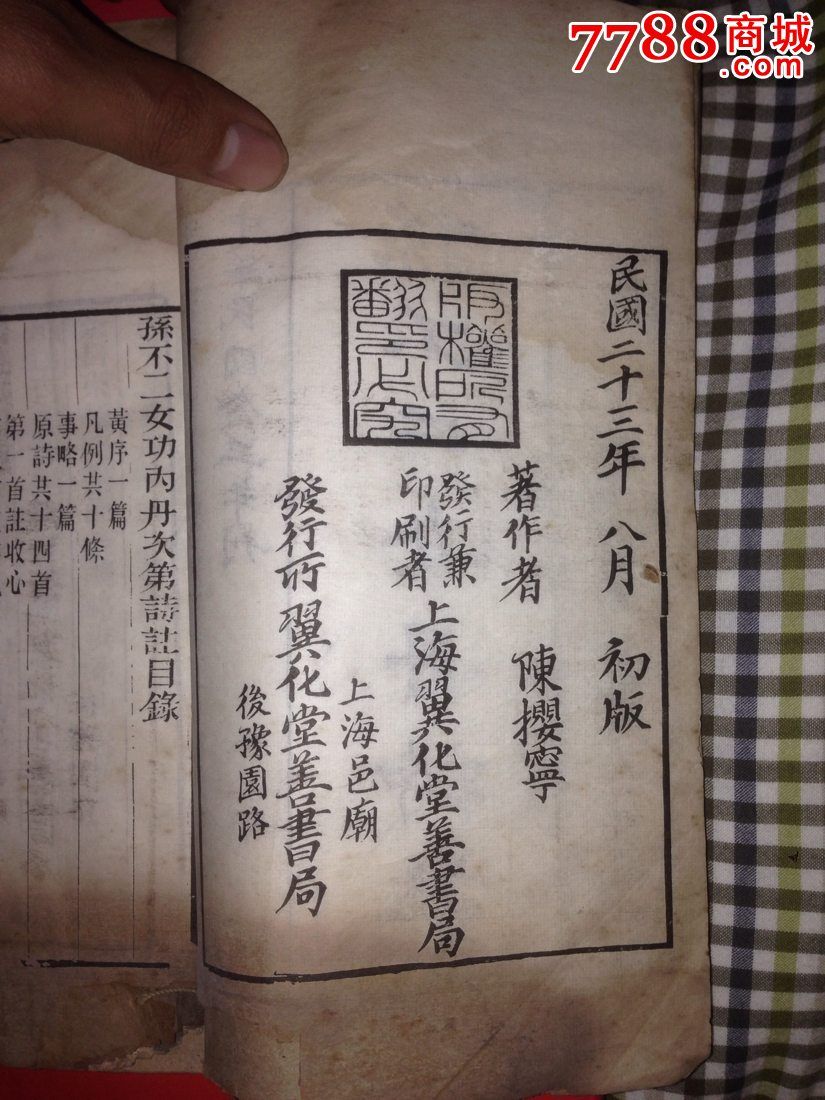 7788商城
.com
民國二十三年 八月 初版
版權所有
翻印必究
著作者 陳攖寧
發行兼
印刷者
上海翼化堂善書局
上海邑廟
發行所 翼化堂善書局
後豫園路
孫不二女功內丹次第詩註目錄
黃序一篇
凡例共十條
事略一篇
原詩共十四首
第一首註收心